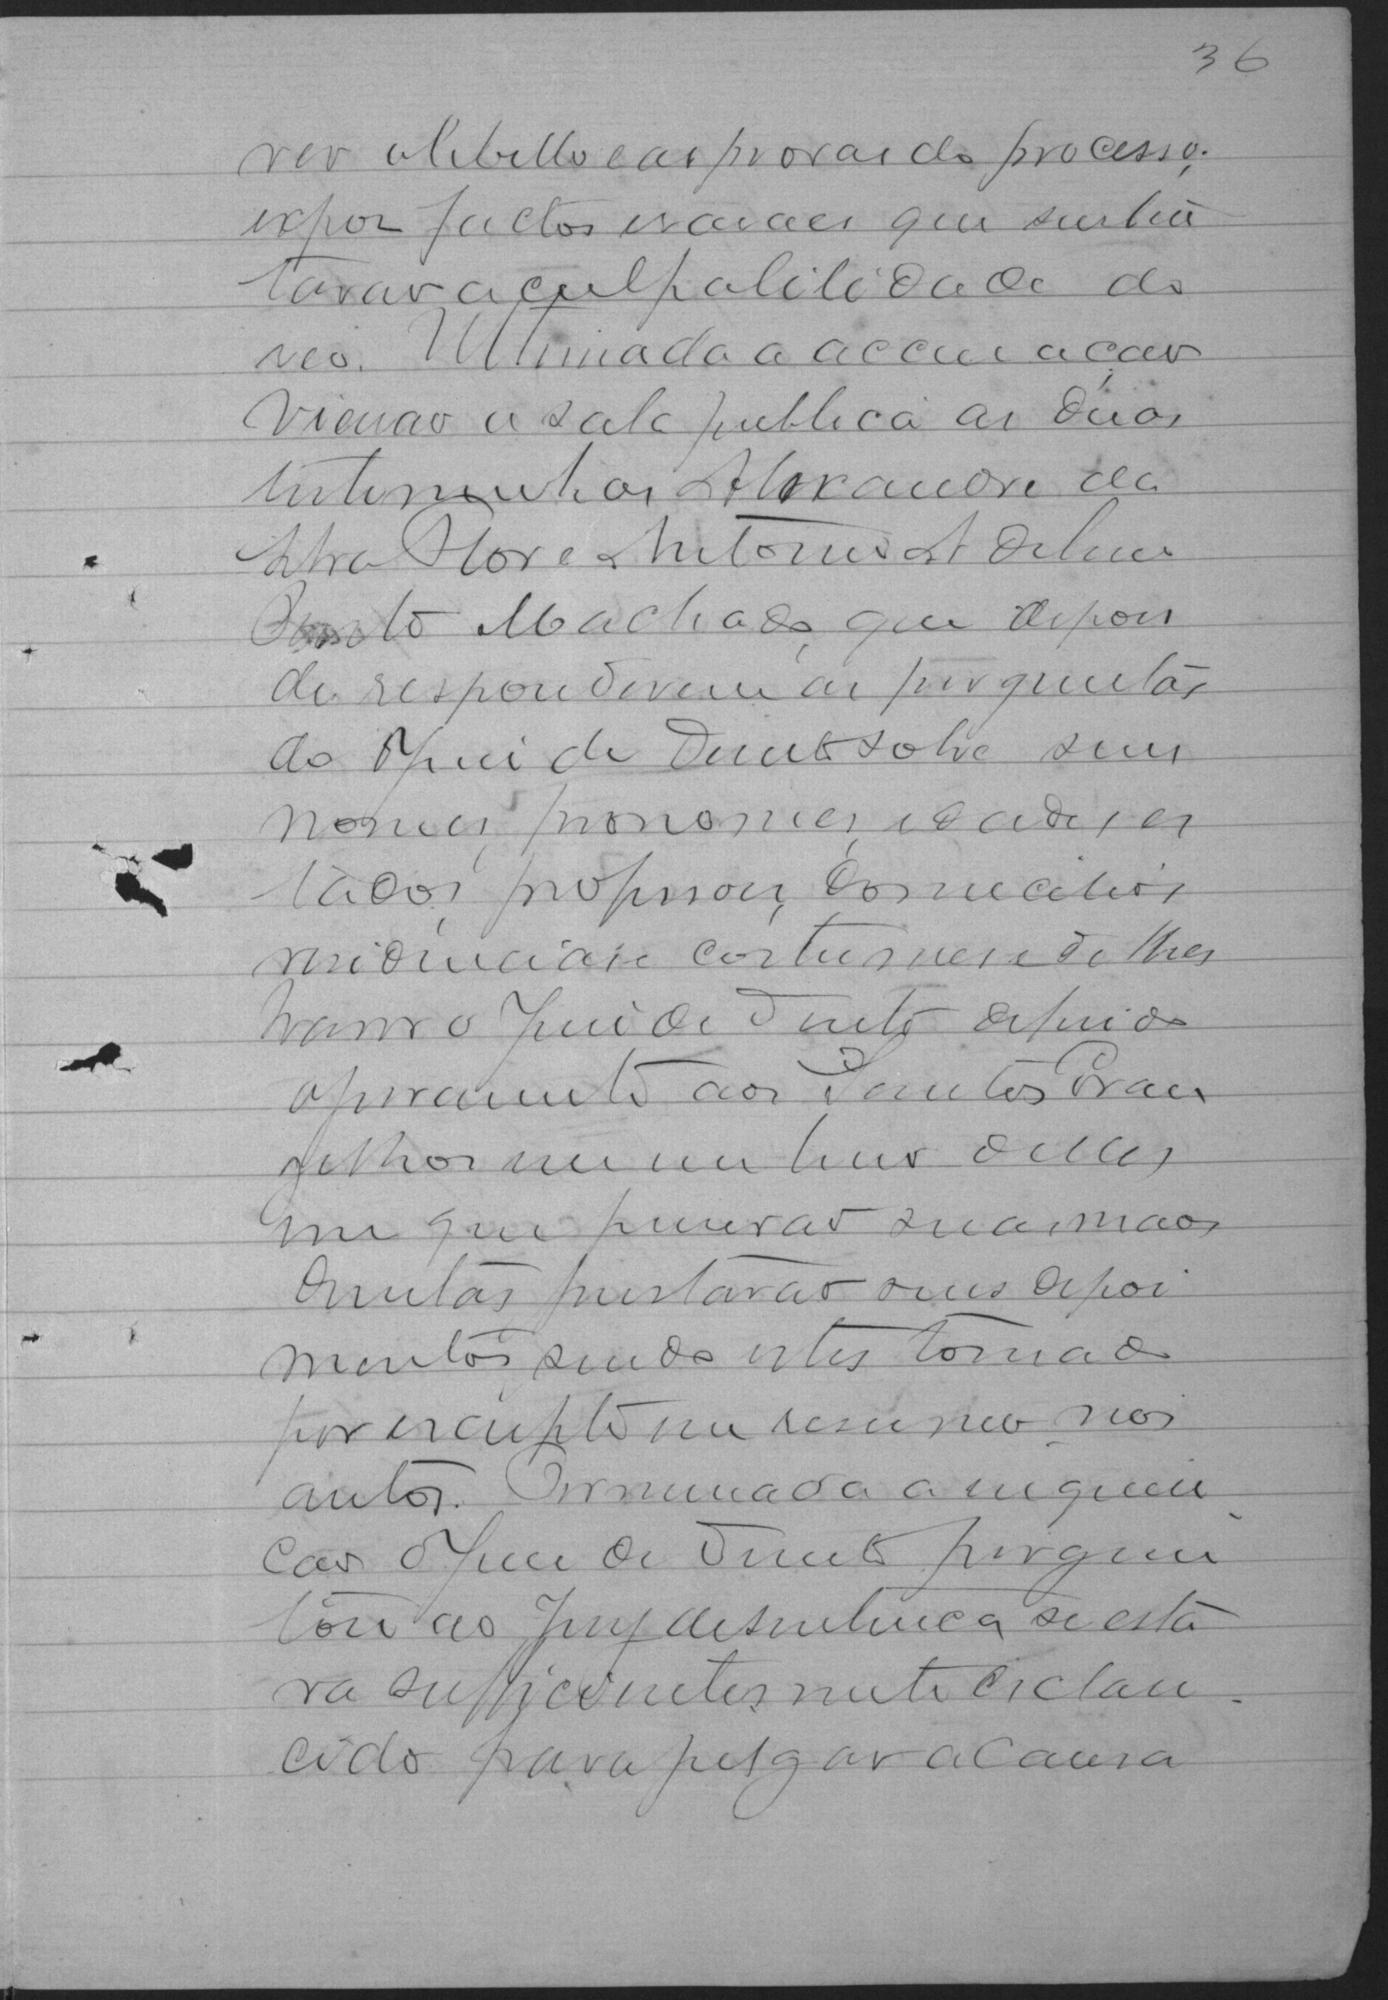 36
reo o libello e as provas do processo;
expoz factos e razões que susten
tavao a culpabilidade do
reo. Ultimada a accusação
vierao a sala publica as duas
testemunhas Alexandre da
Flores Antonio
Machado, que depois
de responderem ás perguntas
do Juiz de Direito sobre seus
nomes, pronomes, idades, es
tados, profissões, domicilios
residencias e costumes e de lhes
haver o Juiz de Direito deferido
o juramento aos Santos Evan
gelhos em um livro delles
em que puzerão suas mãos
direitas prestarão seus depoi
mentos, sendo estes tomado
por escripto em resumo nos
autos. Terminada a inquiri
ção o Juiz de Direito pergun
tou ao Jury de sentença se esta
va sufficientemente esclare
cido para julgar a causa